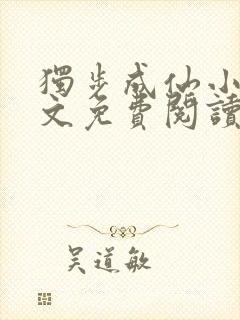 獨步成仙小
文免費閱讀
吴道敏